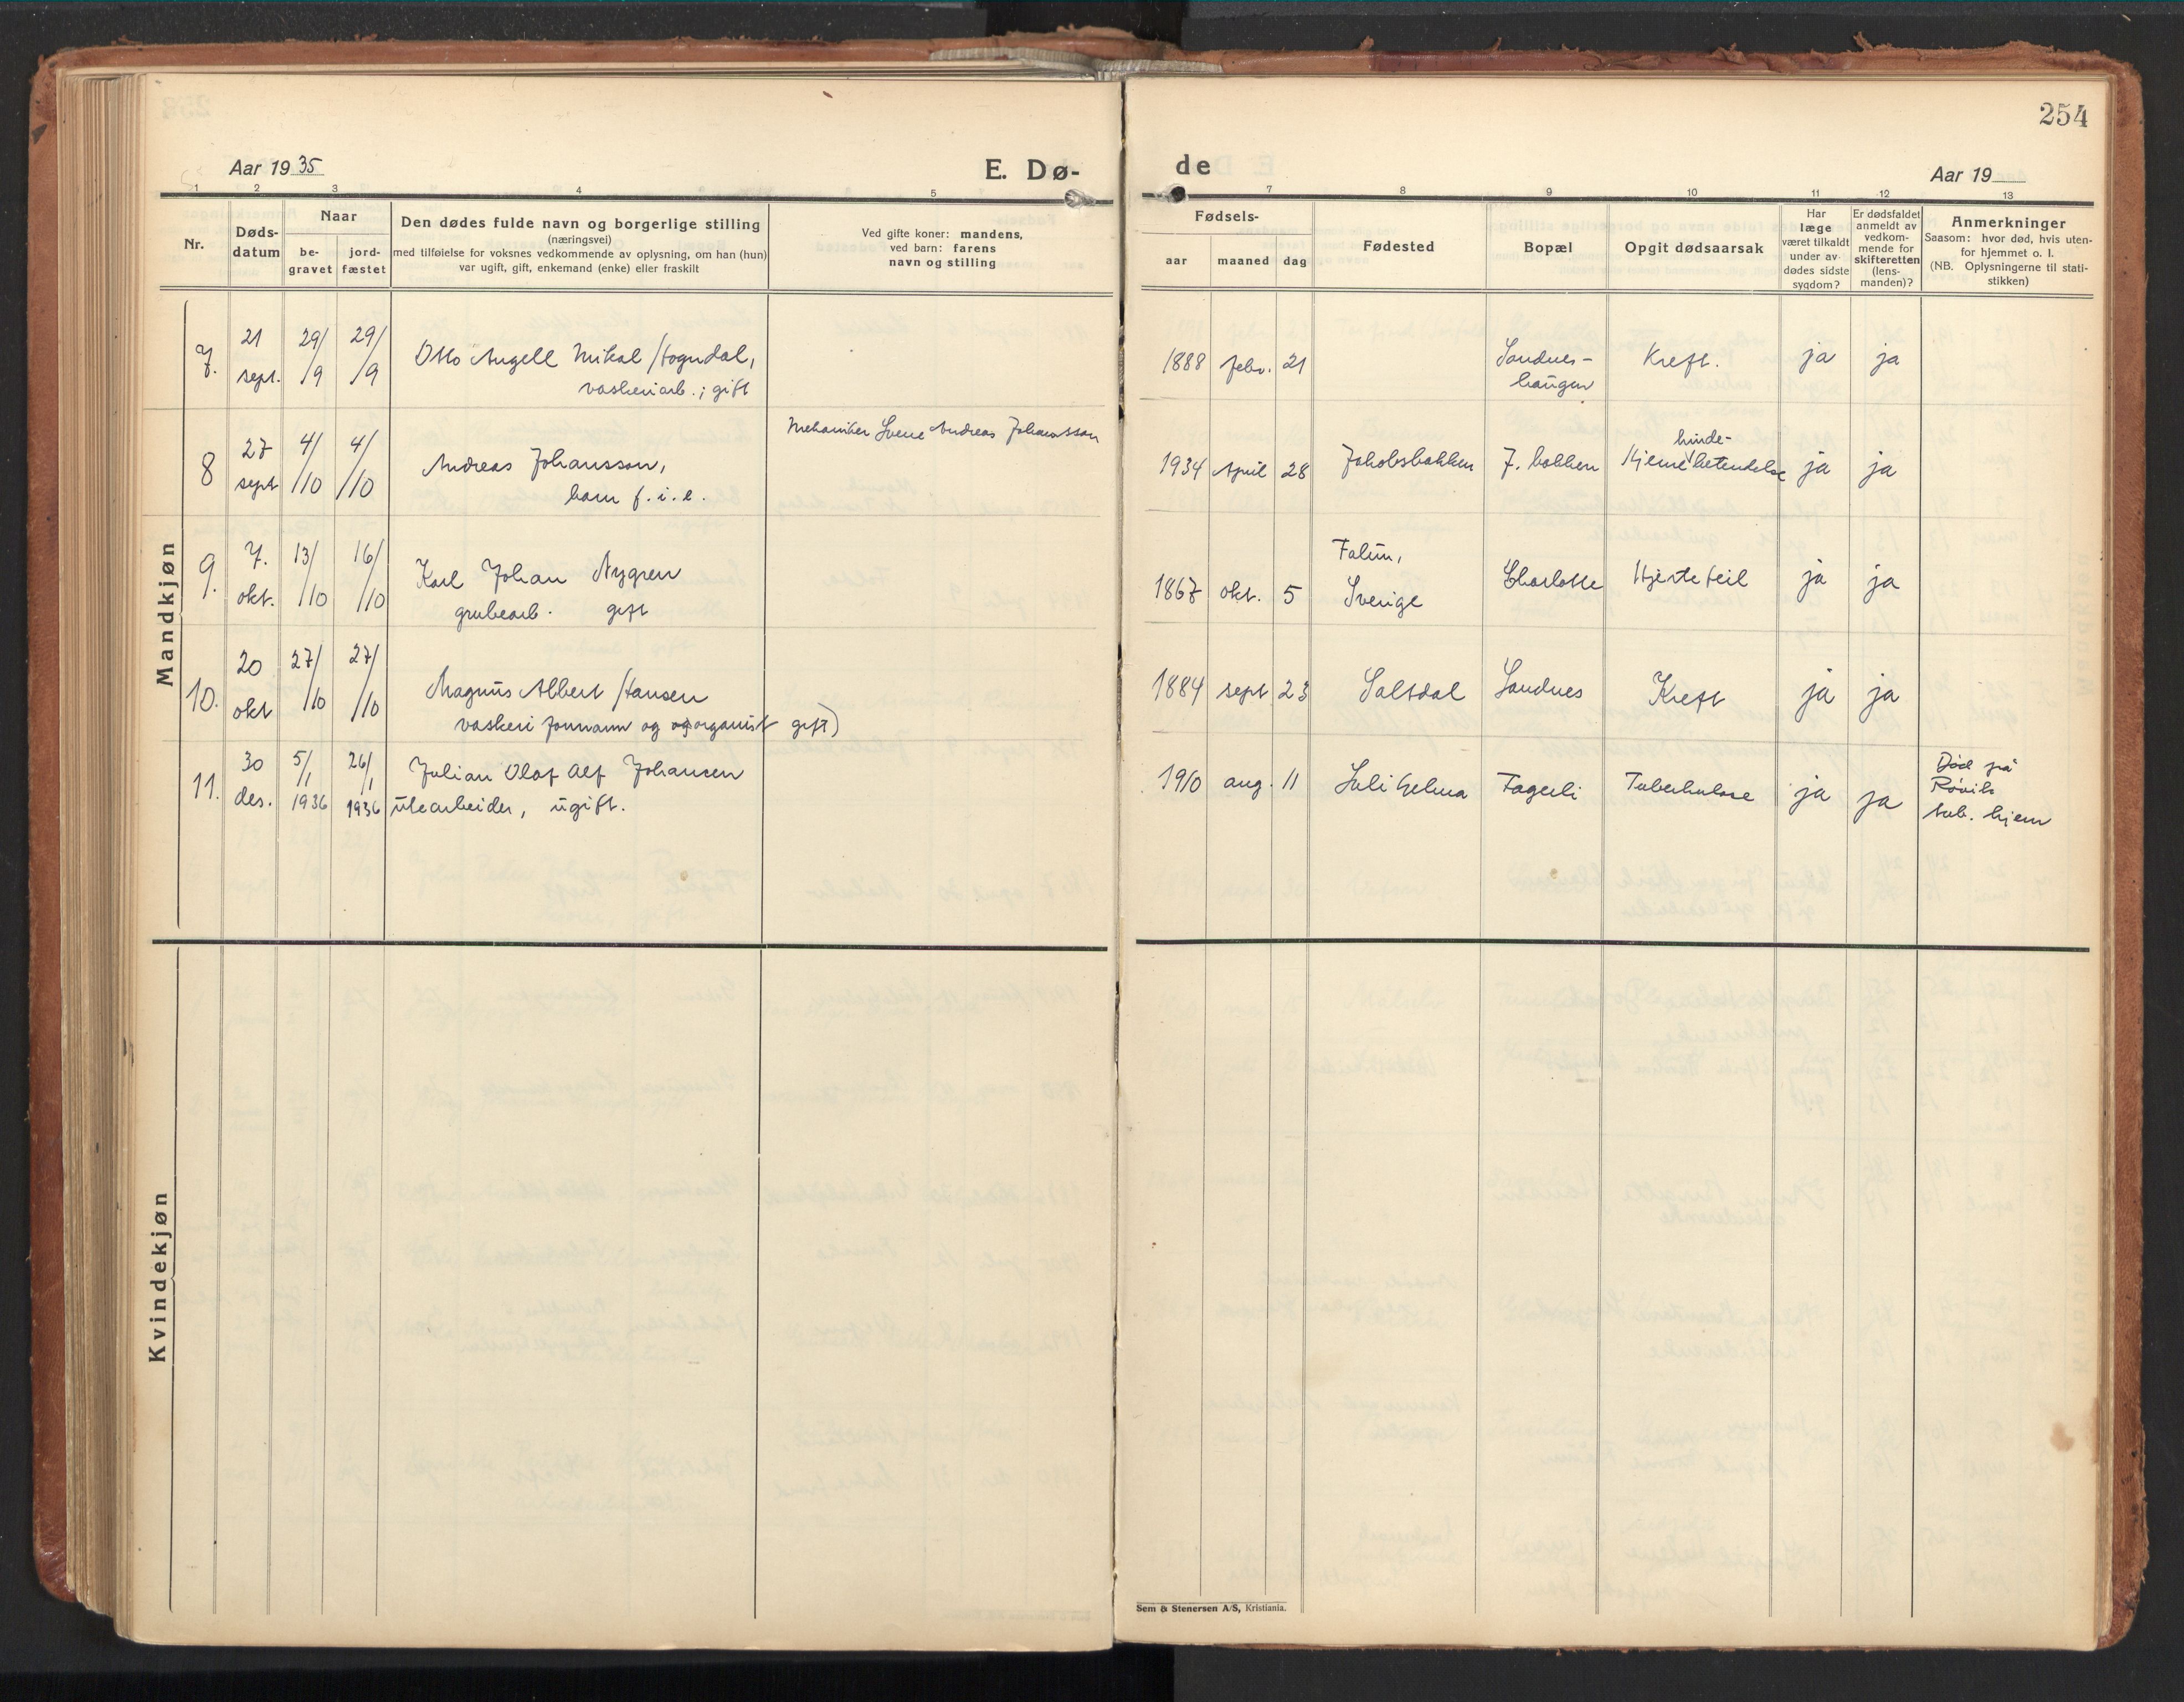 254
Aar 1935
E. Dø-
de
Aar 19
1 2 3 4 5
7 8 9 10 11 12 13
Nr.
Døds-
datum
Naar
be-
gravet
jord-
fæstet
Den dødes fulde navn og borgerlige stilling
(næringsvei)
med tilføielse for voksnes vedkommende av oplysning, om han (hun)
var ugift, gift, enkemand (enke) eller fraskilt
Ved gifte koner: mandens,
ved barn: farens
navn og stilling
Fødsels-
aar maaned dag
Fødested
Bopæl
Opgit dødsaarsak
Har
læge
været tilkaldt
under av-
dødes sidste
sygdom?
Er dødsfaldet
anmeldt av
vedkom-
mende for
skifteretten
(lens-
manden)?
Anmerkninger
Saasom: hvor død, hvis uten-
for hjemmet o. l.
(NB. Oplysningerne til stati-
stikken)
Mandkjøn
7. 21 sept. 29/9 29/9
Otto Angell Mikal Hogndal,
vaskeriarb.; gift
1888 febr. 21
Sandnes-
haugen
Kreft. ja ja
8 27 sept 4/10 4/10
Andreas Johansson,
barn f. i. e.
Mekaniker Svene Andreas Johansson
1934 April 28 Jakobsbakken J. bakken
hinde-
Hjernebetendelse ja ja
9. 7. okt. 13/10 16/10
Karl Johan Nygren
grubearb. gift
1867 okt. 5
Falun,
Sverige
Charlotte Hjertefeil ja ja
10. 20 okt 27/10 27/10
Magnus Albert Hansen
vaskeriformann og organist gift)
1884 sept 23 Saltdal Sandnes Kreft ja ja
11. 30 des. 5/1 1936 26/1 1936
Julian Olaf Alf Johansen
utearbeider, ugift.
1910 aug. 11 Sulitjelma Fagerli Tuberkulose ja ja
Død på
Røvik
tub. hjem
Kvindekjøn
Sem & Stenersen A/S, Kristiania.